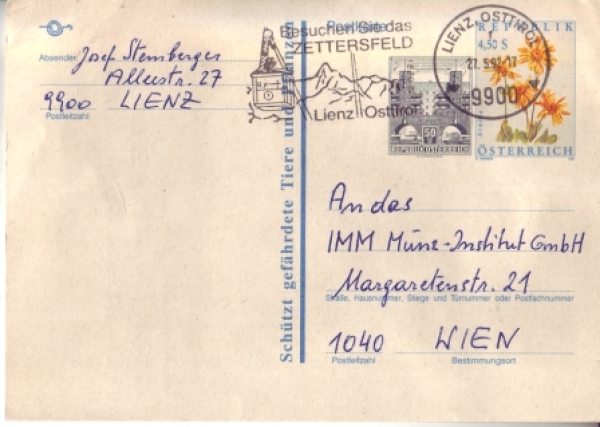 Postkarte
Absender
Josef Stemberger
Alleestr. 27
9900 LIENZ
Postleitzahl
Besuchen Sie das
ZETTERSFELD
Lienz Osttirol
LIENZ, OSTTIROL
9900
50
REPUBLIK ÖSTERREICH
REPUBLIK
4,50 S
ÖSTERREICH
Schützt gefährdete Tiere und Pflanzen
An das
IMM Münz-Institut GmbH
Margaretenstr. 21
Straße, Hausnummer, Stiege und Türnummer oder Postfachnummer
1040 WIEN
Postleitzahl Bestimmungsort